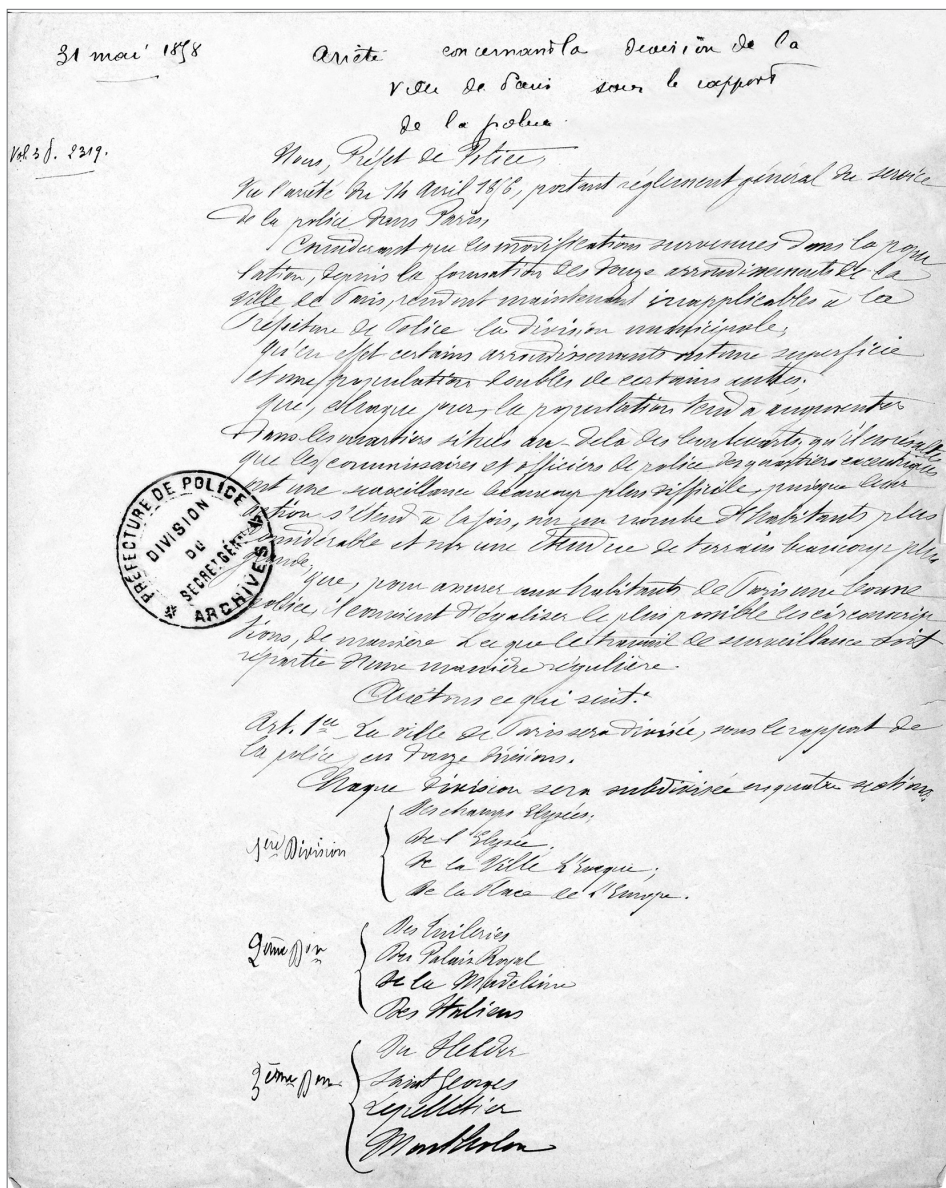 31 mai 1858
Arrêté concernant la division de la
Ville de Paris sous le rapport
de la police.
Vol. 5 f. 2319.
Nous, Préfet de Police,
Vu l'arrêté du 14 Avril 1856, portant règlement général du service
de la police dans Paris,
Considérant que les modifications survenues dans la popu
lation, depuis la formation des douze arrondissements de la
Ville de Paris, rendent maintenant inapplicables à la
Préfecture de Police la division municipale;
qu'en effet certains arrondissements ont une superficie
et une population doubles de certains autres;
que, chaque jour, la population tend à augmenter
dans les quartiers situés au-delà des boulevarts; qu'il en résulte
que les commissaires et officiers de police des quartiers excentriques
ont une surveillance beaucoup plus difficile, puisque leur
action s'étend à la fois, sur un nombre d'habitants plus
considérable et sur une étendue de terrain beaucoup plus
grande;
que, pour assurer aux habitants de Paris une bonne
police, il convient d'égaliser le plus possible les circonscrip
tions, de manière à ce que le travail de surveillance soit
répartie d'une manière régulière.
Arrêtons ce qui suit:
Art. 1er La ville de Paris sera divisée, sous le rapport de
la police, en douze divisions.
Chaque division sera subdivisée en quatre sections.
1ère Division
Des champs Elysées;
De l'Elysée;
de la Ville l'Evêque;
de la Place de l'Europe.
2ème Don
Des Tuileries
Du Palais Royal
de la Madeleine
Des Italiens
3ème Don
Du Helder
Saint Georges
Lepelletier
Montholon
PRÉFECTURE DE POLICE
DIVISION
DU
SECRET. GÉNal
ARCHIVES